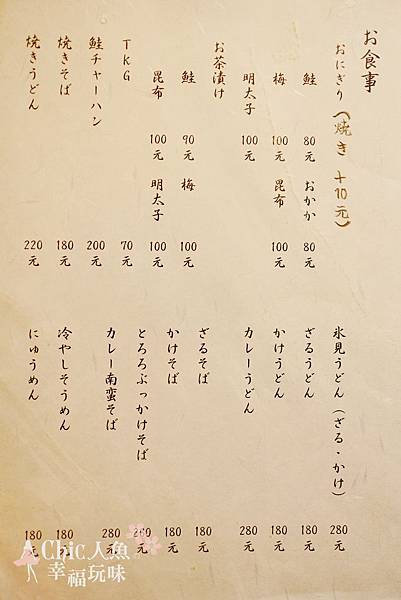 お食事
おにぎり(焼き +10元)
鮭 80元 おかか 80元
梅 100元 昆布 100元
明太子 100元
お茶漬け
鮭 90元 梅 100元
昆布 100元 明太子 100元
TKG 70元
鮭チャーハン 200元
焼きそば 180元
焼きうどん 220元
氷見うどん(ざる・かけ) 280元
ざるうどん 180元
かけうどん 180元
カレーうどん 280元
ざるそば 180元
かけそば 180元
とろろぶっかけそば 280元
カレー南蛮そば 280元
冷やしそうめん 180元
にゅうめん 180元
Chic人魚
幸福玩味